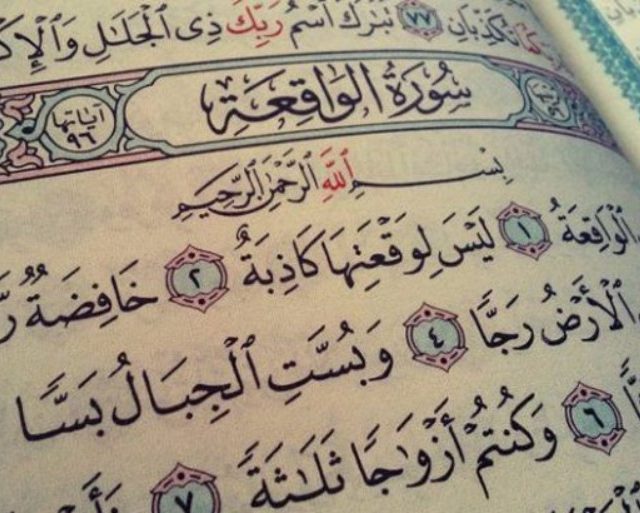 تُكَذِّبَانِ ٧٧ تَبَٰرَكَ ٱسْمُ رَبِّكَ ذِى ٱلْجَلَٰلِ وَٱلْإِكْ
سُورَةُ الوَاقِعَةِ
آيَاتُهَا ٩٦
بِسْمِ ٱللَّهِ ٱلرَّحْمَٰنِ ٱلرَّحِيمِ
ٱلْوَاقِعَةُ ١ لَيْسَ لِوَقْعَتِهَا كَاذِبَةٌ ٢ خَافِضَةٌ رَّ
ٱلْأَرْضُ رَجًّا ٤ وَبُسَّتِ ٱلْجِبَالُ بَسًّا
٦ وَكُنتُمْ أَزْوَٰجًا ثَلَٰثَةً ٧